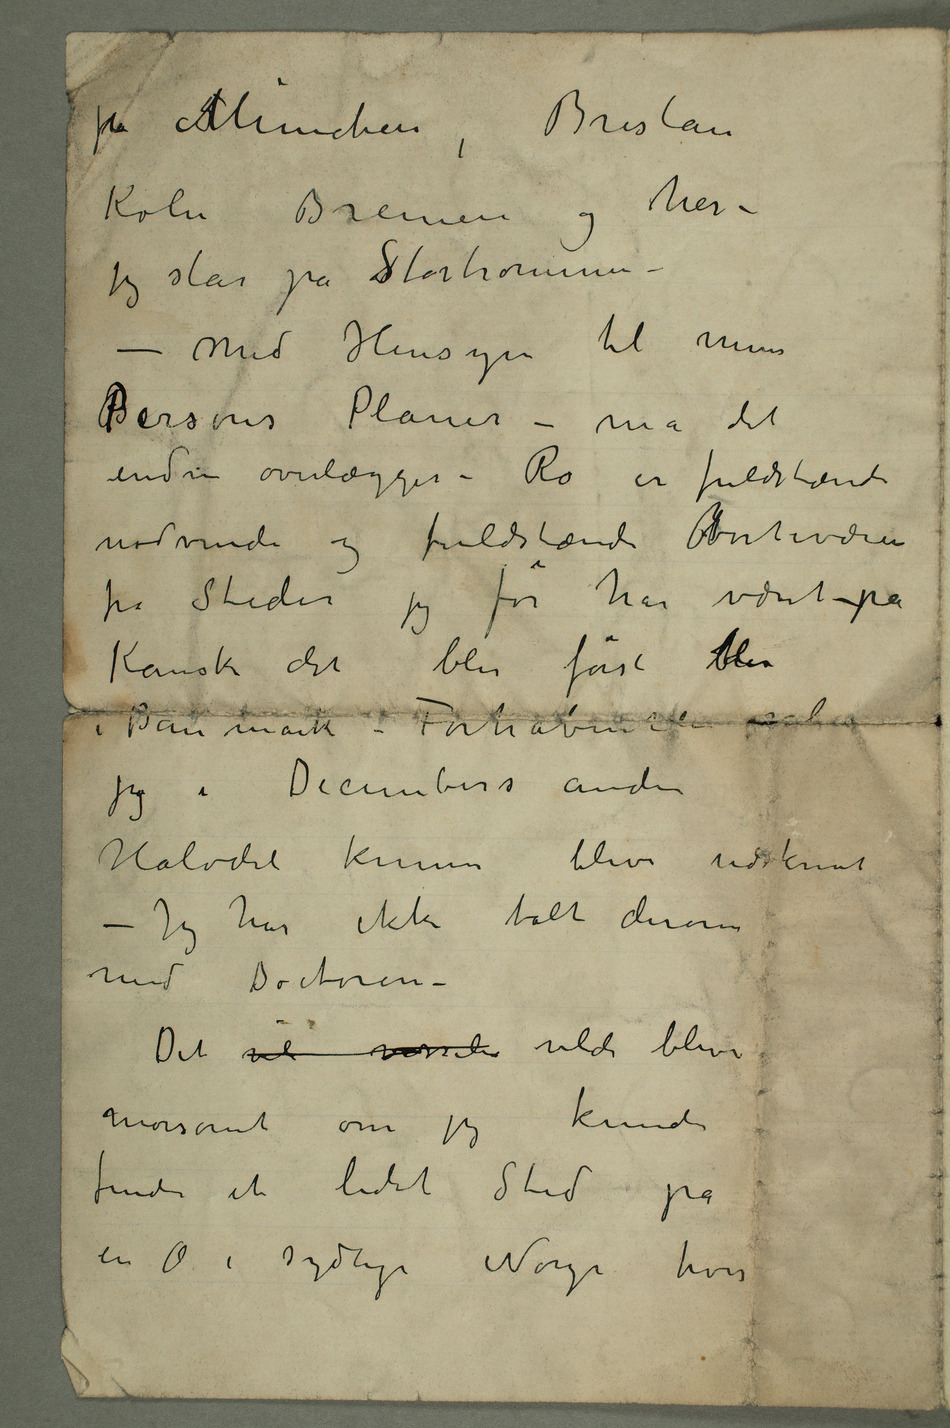 på München, Breslau
Køln Bremen og her –
jeg slår på Stortromme –
— Med Hensyn til min
Persons Planer – må det
endnu overlægges – Ro er fuldstænd
nødvendi og fuldstændi Borteværen
fra Steder jeg før har været på
Kanske det blir først
i Danmark – Forhåbentlig
jeg i Decembers anden
Halvdel kunne blive udskrevet
— Jeg har ikke talt derom
med Doctoren –
Det vil vilde blive
morsomt om jeg kunde
finde et lidet Sted på
en Ø i sydlige Norge hvor